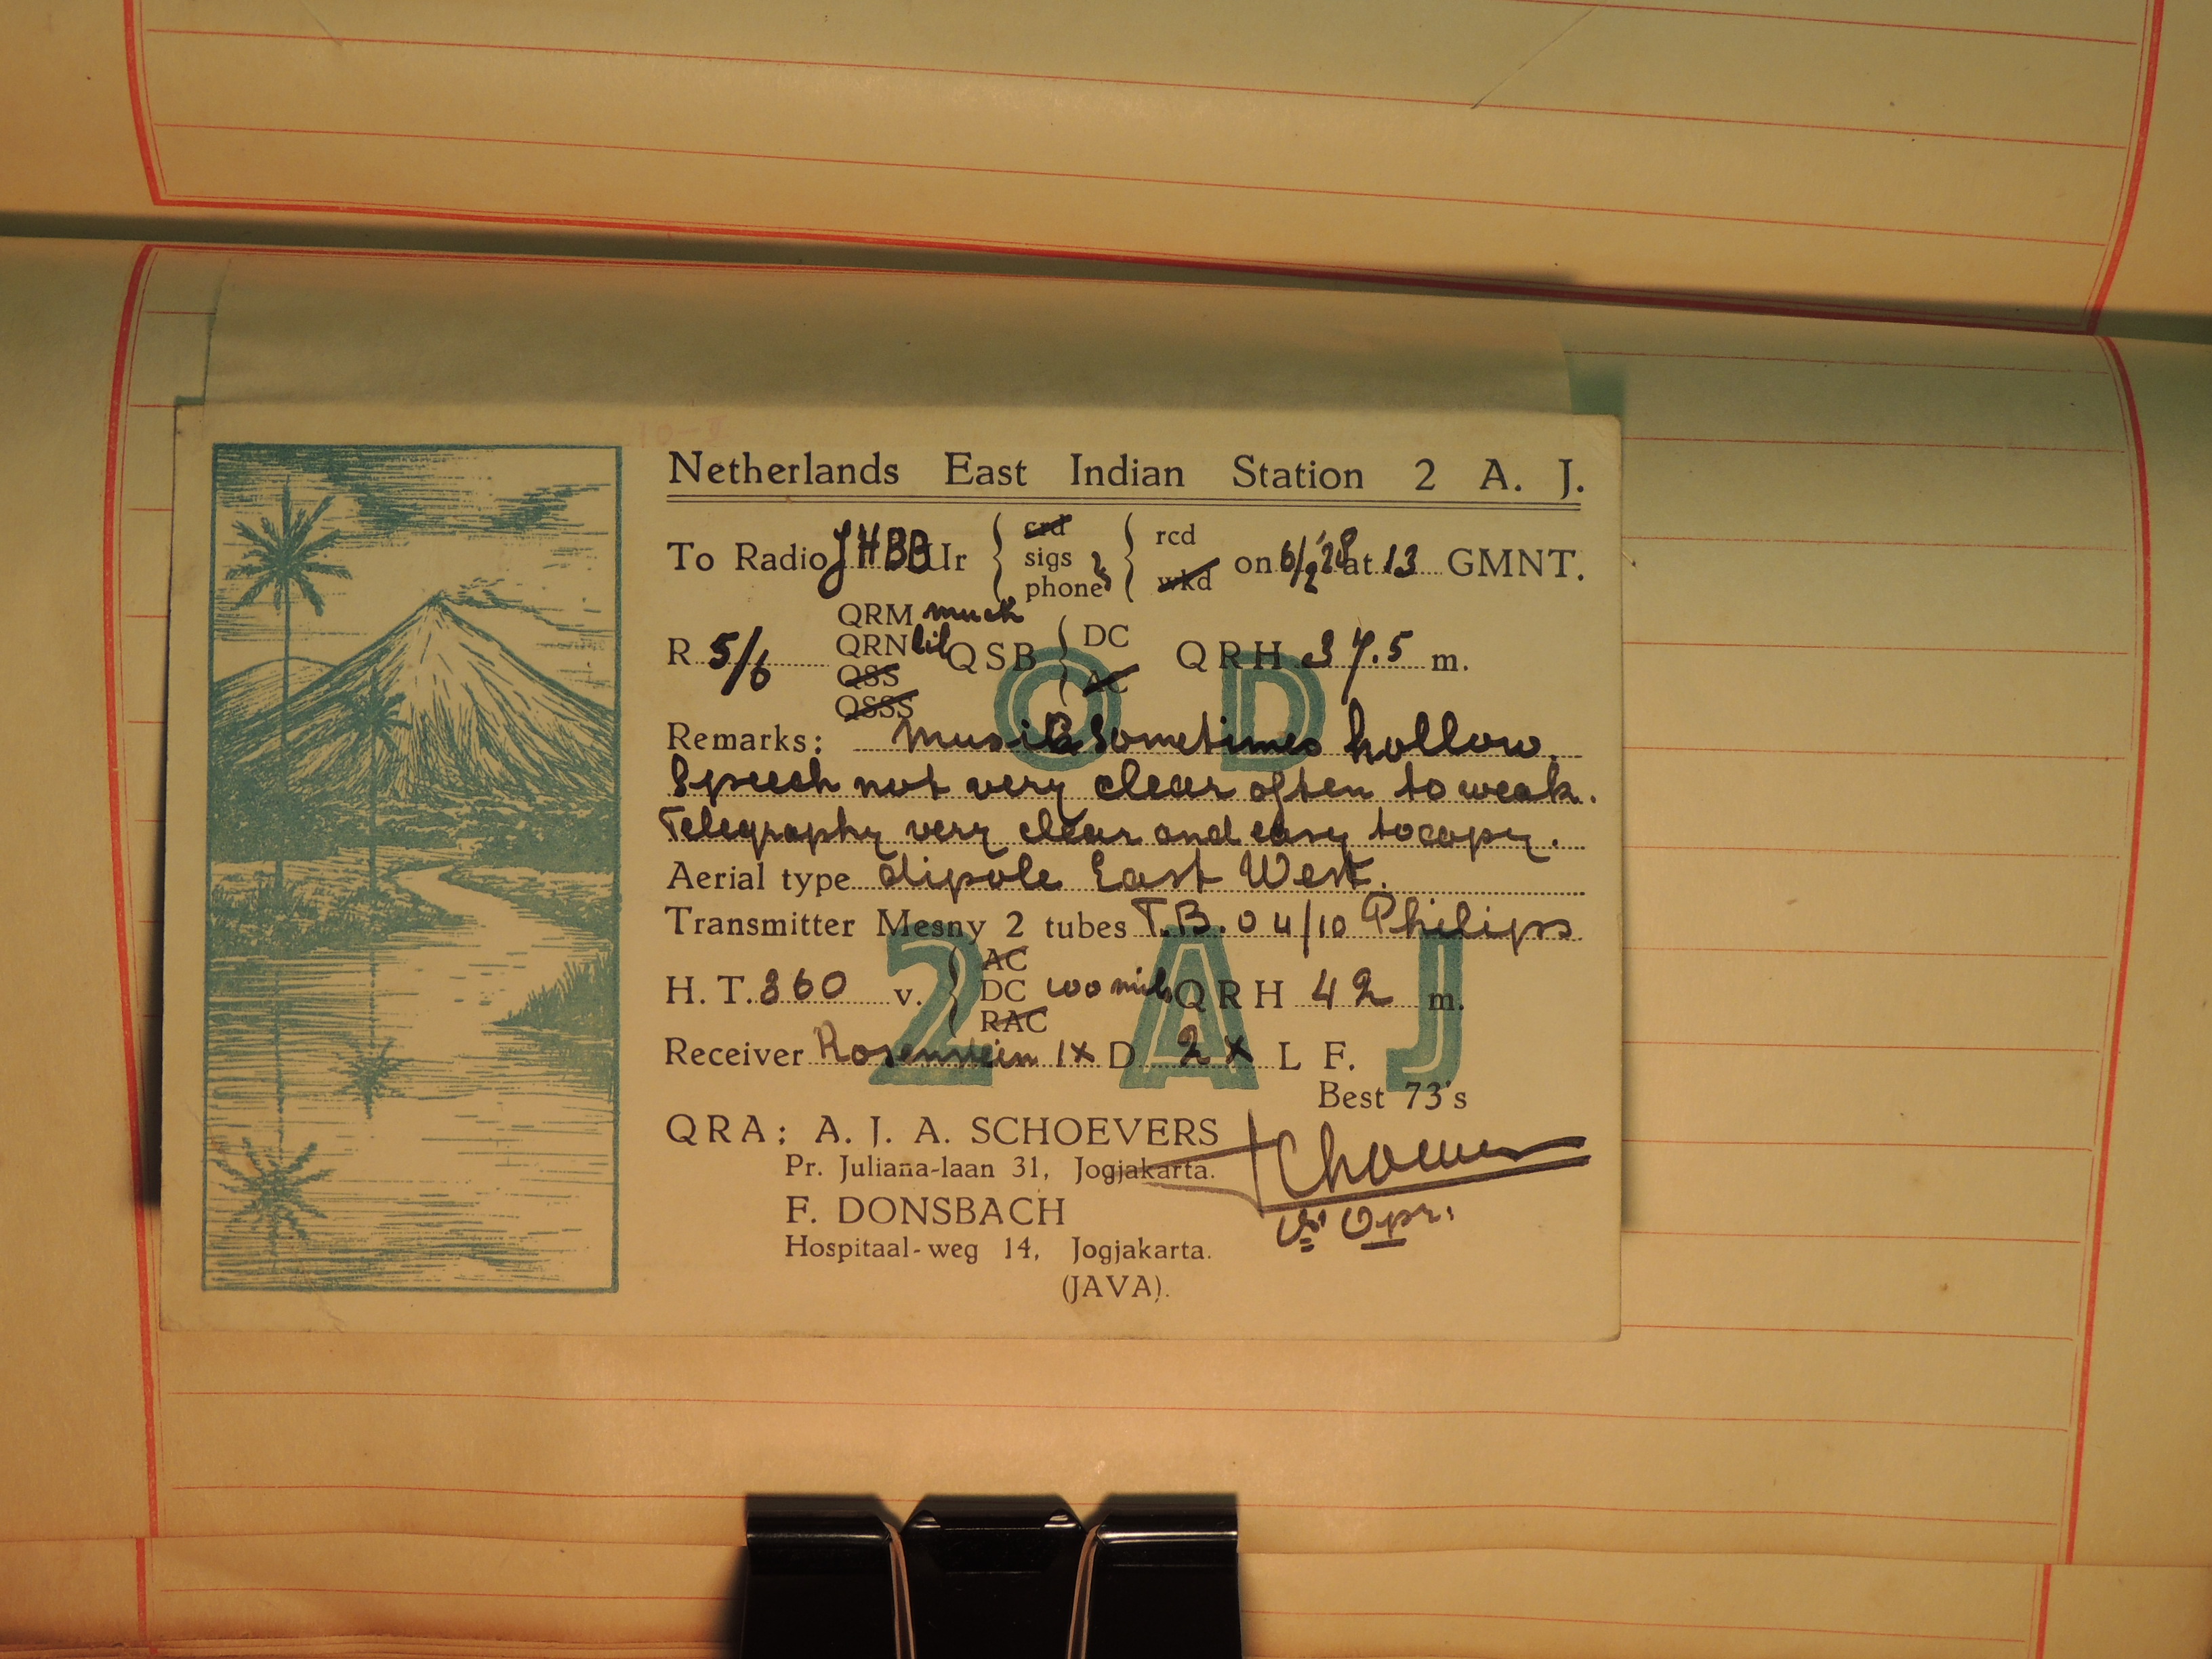 10-2
Netherlands East Indian Station 2 A. J.
To Radio JHBB Ur { crd sigs phone } { rcd wkd on 6/2 '28 at 13 GMNT.
R 5/6 QRM much QRN lil QSS QSSS QSB { DC AC QRH 37.5 m.
OD
Remarks: Musik sometimes hollow.
Speech not very clear often to weak.
Telegraphy very clear and easy to copy.
Aerial type dipole East West.
Transmitter Mesny 2 tubes T.B. 04/10 Philips
H. T. 360 v. { AC DC RAC 100 mils QRH 42 m.
2 A J
Receiver Rosenstein 1x D 2x L F.
Best 73's
QRA: A. J. A. SCHOEVERS
Pr. Juliana-laan 31, Jogjakarta.
F. DONSBACH
Opr.
Hospitaal-weg 14, Jogjakarta.
(JAVA).